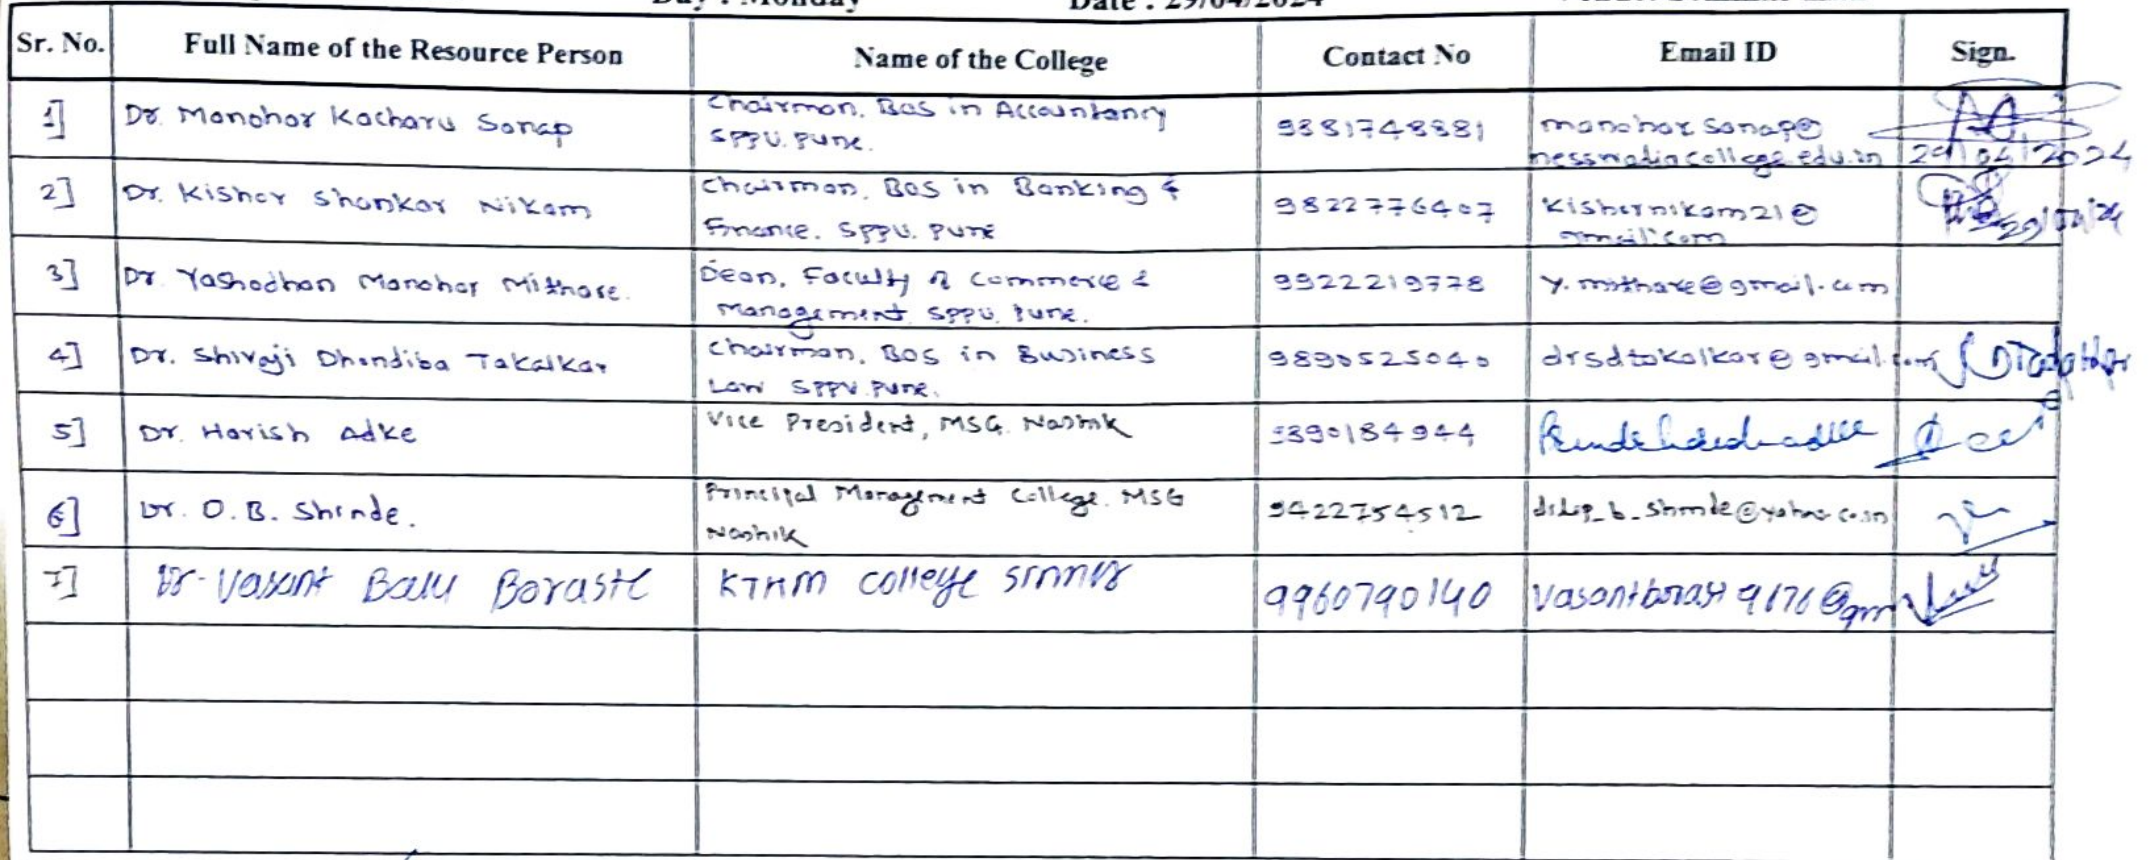 Day : Monday Date : 29/04/2024
Sr. No. Full Name of the Resource Person Name of the College Contact No Email ID Sign.
1] Dr. Manohar Kacharu Sanap Chairman, BoS in Accountancy 9881748881 manohar sanap@
SPPU. Pune. nesswadiacollege.edu.in 29/04/2024
2] Dr. Kishor Shankar Nikam Chairman, BoS in Banking & 9822776407 Kishornikam21@
Finance. SPPU. Pune gmail.com
3] Dr. Yashodhan Manohar Mithare. Dean, Faculty of Commerce & 9922219778 y.mithare@gmail.com
Management SPPU. Pune.
4] Dr. Shivaji Dhondiba Takalkar Chairman, BOS in Business 9890525040 drsdtakalkar@gmail.com
Law SPPU. Pune.
5] Dr. Harish Adke Vice President, MSG. Nashik 9890184944
6] Dr. D.B. Shinde. Principal Management College. MSG 9422754512 dilip_b_shinde@yahoo.co.in
Nashik
7] Dr. Vasant Balu Boraste KTHM College Sinnar 9960790140 vasantborast9676@gm